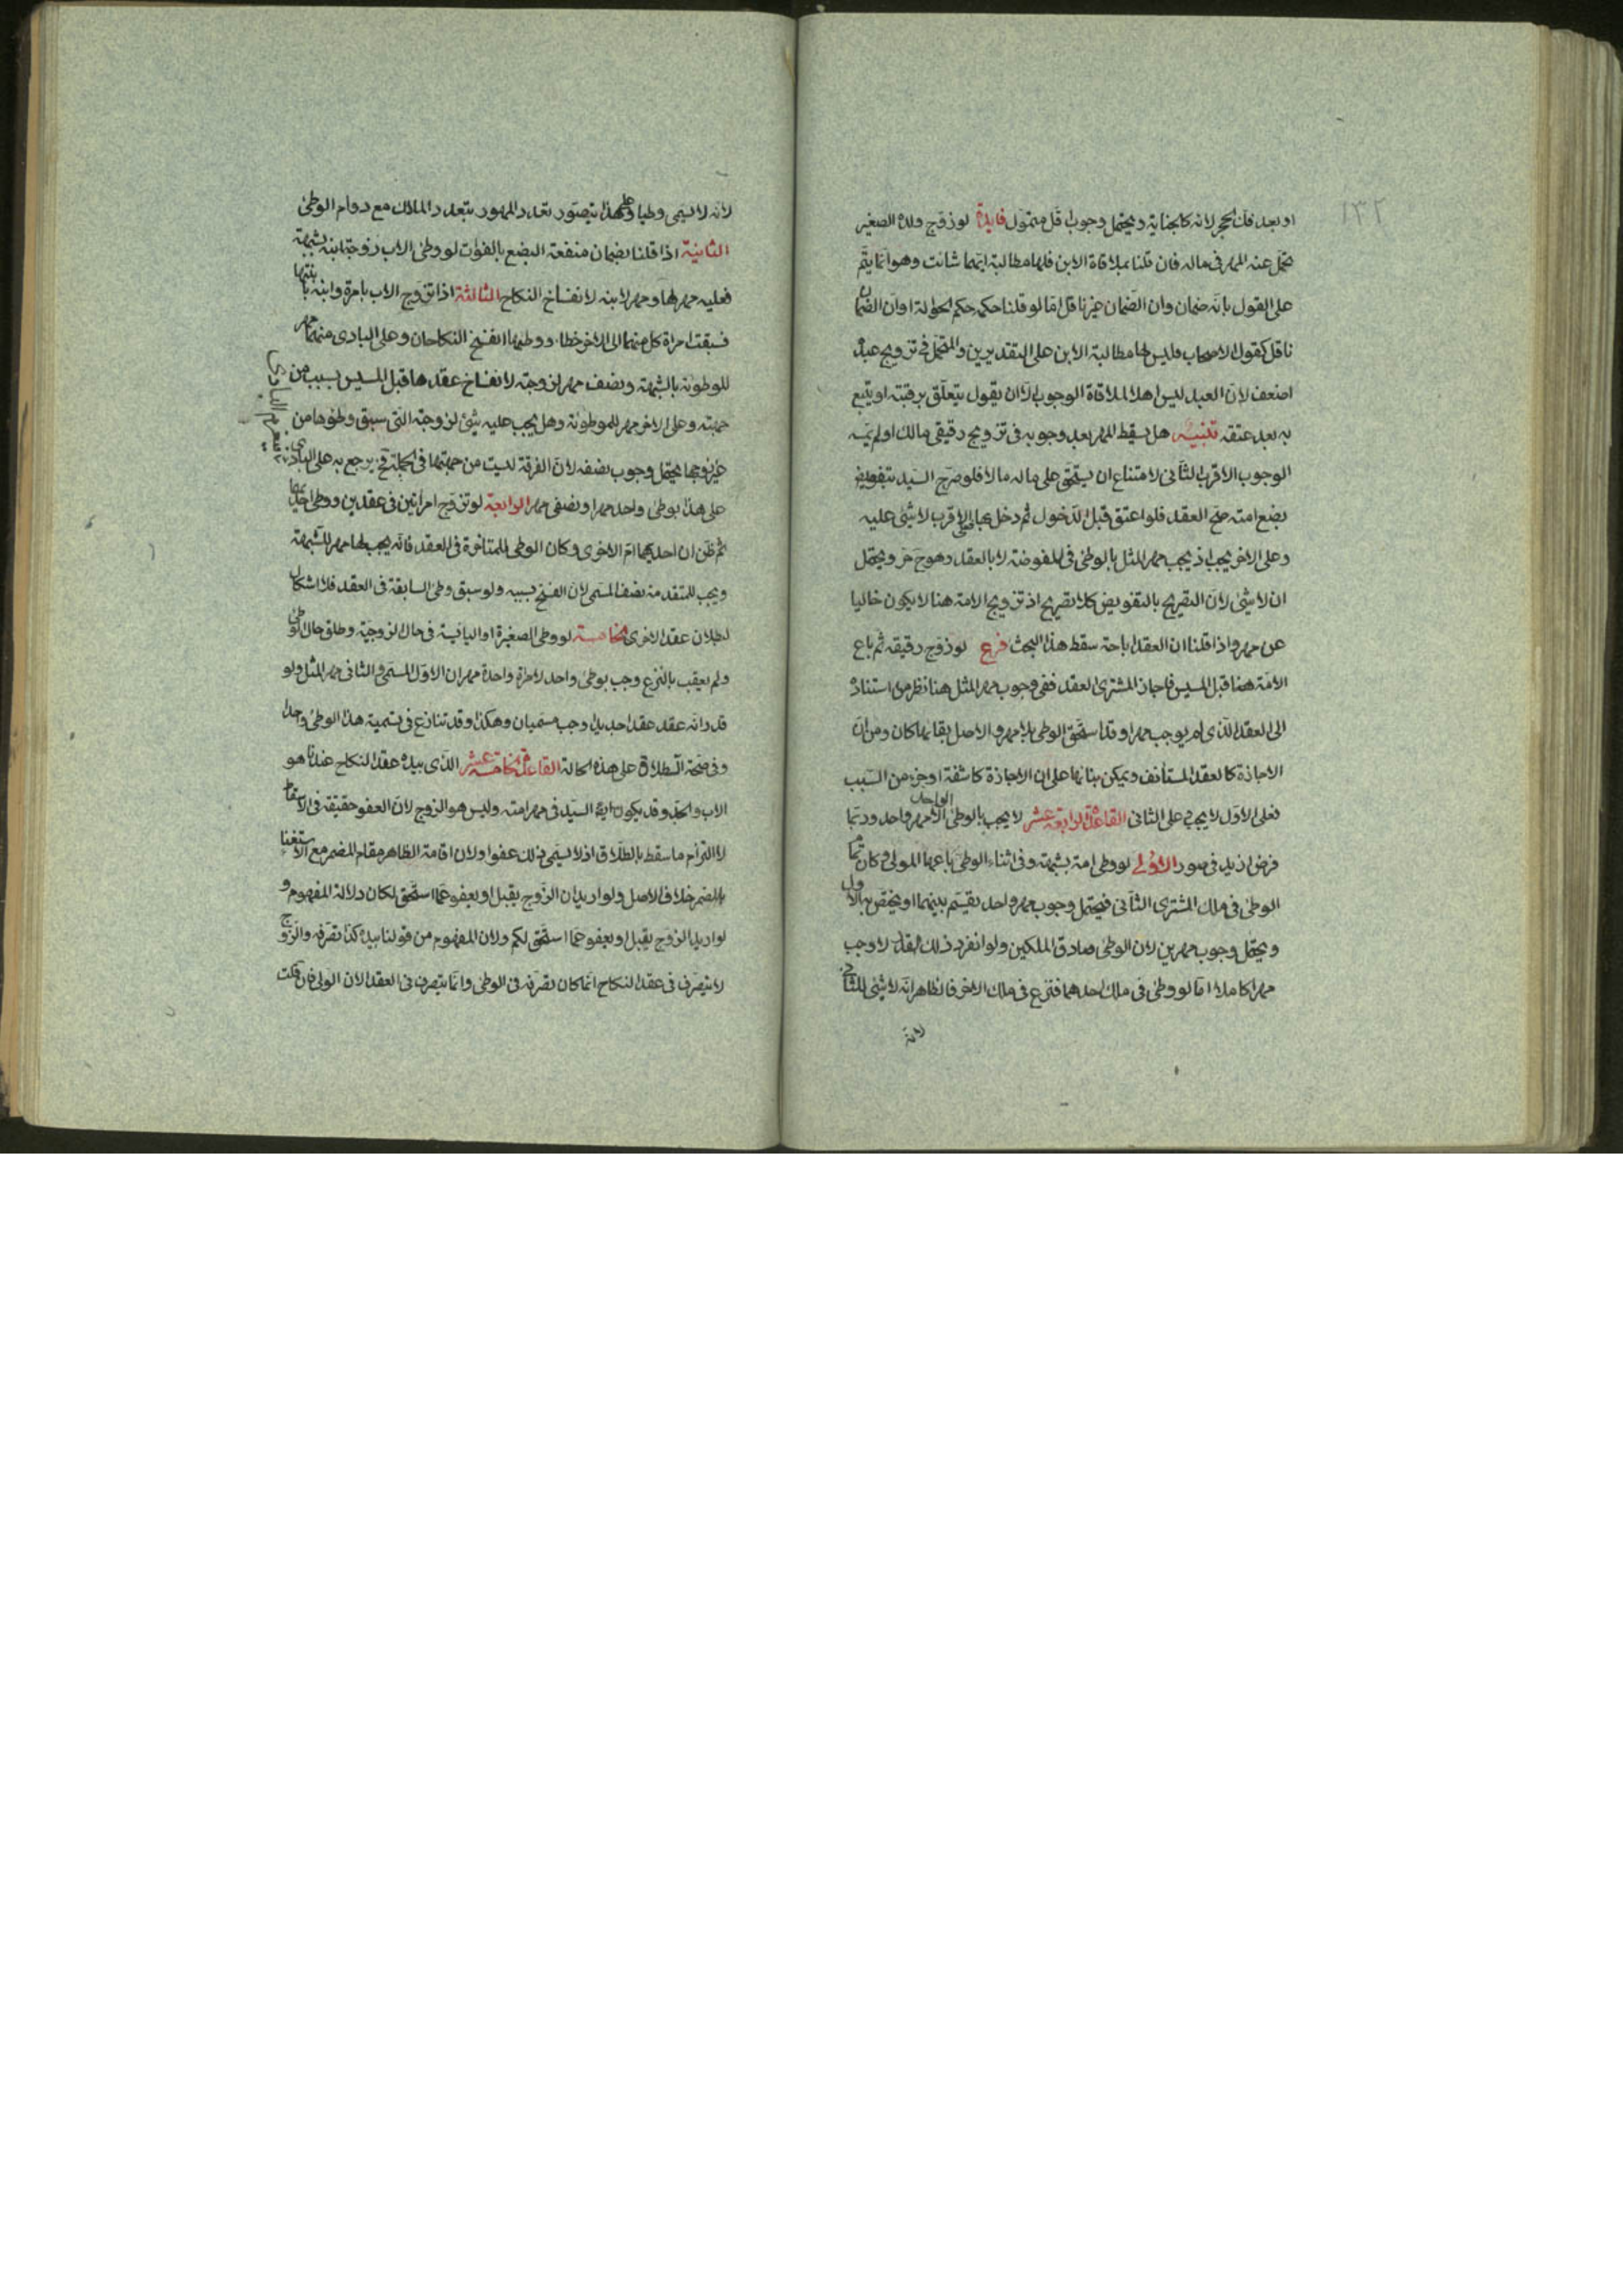 ١٣٢
او بعد فك الحجر لانه كالجناية ويحتمل وجوب اقل متمول فايدة لو زوج ولده الصغير
تحمل عنه المهر فى ماله فان قلنا بملاقاة الابن فلها مطالبة ايهما شائت وهو انما يتم
على القول بانه ضمان وان الضمان غير ناقل اما لو قلنا حكمه حكم الحوالة او ان الضمان
ناقل كقول الاصحاب فليس لها مطالبة الابن على التقديرين والمتحمل فى تزويج عبده
اضعف لان العبد ليس اهلا لملاقاة الوجوب الا ان يقول يتعلق برقبته او يتبع
به بعد عتقه تنبيه هل يسقط المهر بعد وجوبه فى تزويج رقيقى مالك او لم يسبق
الوجوب الاقرب الثانى لامتناع ان يستحق على ماله مالا فلو صرح السيد بتفويض
بضع امته صح العقد فلو اعتق قبل الدخول ثم دخل بها فعلى الاقرب لا شئ عليه
وعلى الاخر يجب اذ يجب مهر المثل بالوطئ فى المفوضة لا بالعقد وهو ح حر ويحتمل
ان لا شئ لان التصريح بالتفويض كلا تصريح اذ تزويج الامة هنا لا يكون خاليا
عن مهر واذا قلنا ان العقد اباحة سقط هذا البحث فرع لو زوج رقيقه ثم باع
الامة هنا قبل المسيس فاجاز المشترى العقد ففى وجوب مهر المثل هنا نظر من استناده
الى العقد الذى لم يوجب مهرا وقد استحق الوطئ بلا مهر والاصل بقائها كان ومن ان
الاجازة كالعقد المستأنف ويمكن بنائها على ان الاجازة كاشفة او جزء من السبب
فعلى الاول لا يجب على الثانى القاعدة الرابعة عشر لا يجب بالوطئ الواحد الا مهر واحد وربما
فرض ازيد فى صور الاولى لو وطى امة بشبهة وفى اثناء الوطئ باعها المولى وكان تمام
الوطئ فى ملك المشترى الثانى فيحتمل وجوب مهر واحد يقسم بينهما او يختص به الاول
ويحتمل وجوب مهرين لان الوطئ صادق الملكين ولو انفرد ذلك القدر لاوجب
مهرا كاملا اما لو وطئ فى ملك احدهما فنزع فى ملك الاخر فالظاهر انه لا شئ للثانى
لانه
لانه لا يسمى وطيا وعلى هذا يتصور تعدد المهور بتعدد الملاك مع دوام الوطئ
الثانية اذا قلنا بضمان منفعة البضع بالفوات لو وطئ الاب زوجة ابنه بشبهة
فعليه مهر لها ومهر لابنه لانفساخ النكاح الثالثة اذا تزوج الاب بامرة وابنه بابنتها
فسبقت امراة كل منهما الى الاخر خطاء ووطيها انفسخ النكاحان وعلى البادى منهما مهر
للموطوئة بالشبهة ونصف مهر لزوجته لانفساخ عقدها قبل المسيس بسبب من
جهته وعلى الاخر مهر للموطوئة وهل يجب عليه شئ لزوجته التى سبق وطئوها من
غير زوجها يحتمل وجوب نصفه لان الفرقة ليست من جهتها فى الجملة فح يرجع به على البادى
على هذا بوطى واحد مهرا ونصفى مهر الرابعة لو تزوج امراتين فى عقدين ووطى احديهما
ثم ظن ان احديهما ام الاخرى وكان الوطى للمتاخرة فى العقد فانه يجب لها مهر للشبهة
ويجب للمتقدمة نصف المسمى لان الفسخ بسببه ولو سبق وطى السابقة فى العقد فلا اشكال
لبطلان عقد الاخرى الخامسة لو وطى الصغيرة او اليائسة فى حال الزوجية وطلق حال الوطى
ولم يعقب بالنزع وجب بوطى واحد لامراة واحدة مهران الاول المسمى والثانى مهر المثل ولو
قدر انه عقد عقدا جديدا وجب مسميان وهكذا وقد تنازع فى تسمية هذا الوطئ واحدا
وفى صحة الطلاق على هذه الحالة القاعدة الخامسة عشر الذى بيده عقدة النكاح عندنا هو
الاب والجد وقد يكون السيد فى مهر امته وليس هو الزوج لان العفو حقيقة فى الاسقاط
لا التزام ما سقط بالطلاق اذ لا يسمى ذلك عفوا ولان اقامة الظاهر مقام المضمر مع الاستغناء
بالمضمر خلاف الاصل ولو اريد ان الزوج يقبل او يعفو عما استحق لكان دلالة المفهوم و
لو اريد الزوج يقبل او يعفو عما استحق لكم ولان المفهوم من قولنا بيده كذا تصرفه والزوج
لا يتصرف فى عقد النكاح انما كان تصرفه فى الوطئ وانما يتصرف فى العقد الان الولى فان قلت